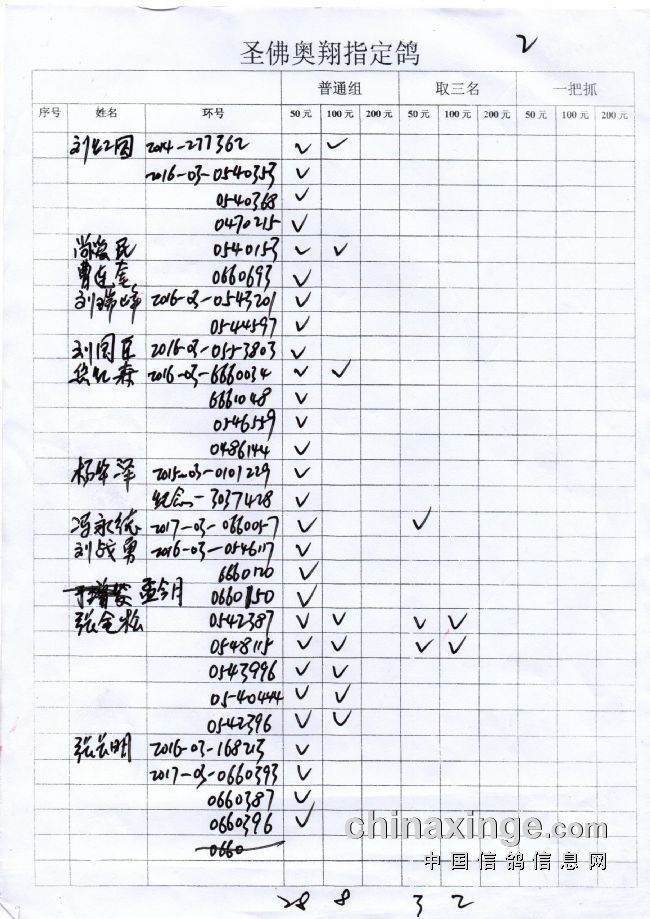 2
圣佛奥翔指定鸽
普通组 取三名 一把抓
序号 姓名 环号 50元 100元 200元 50元 100元 200元 50元 100元 200元
2014-277362 ✓ ✓
2016-03-0540353 ✓
0540368 ✓
0470215 ✓
0540153 ✓ ✓
0660693 ✓
刘瑞峰 2016-03-0543201 ✓
0544597 ✓
刘国臣 2016-03-0553803 ✓
2016-03-6660034 ✓ ✓
6661048 ✓
0546559 ✓
0486144 ✓
2015-03-0101229 ✓
纪念-3037428 ✓
冯永德 2017-03-0660057 ✓ ✓
刘战勇 2016-03-0546117 ✓
6660120 ✓
0660150 ✓
张金松 0542387 ✓ ✓ ✓ ✓
0548115 ✓ ✓ ✓ ✓
0543996 ✓ ✓
0540444 ✓ ✓
0542396 ✓ ✓
张长明 2016-03-168213 ✓
2017-03-0660393 ✓
0660387 ✓
0660396 ✓
0660
chinaxinge.com
中国信鸽信息网
28 8 3 2